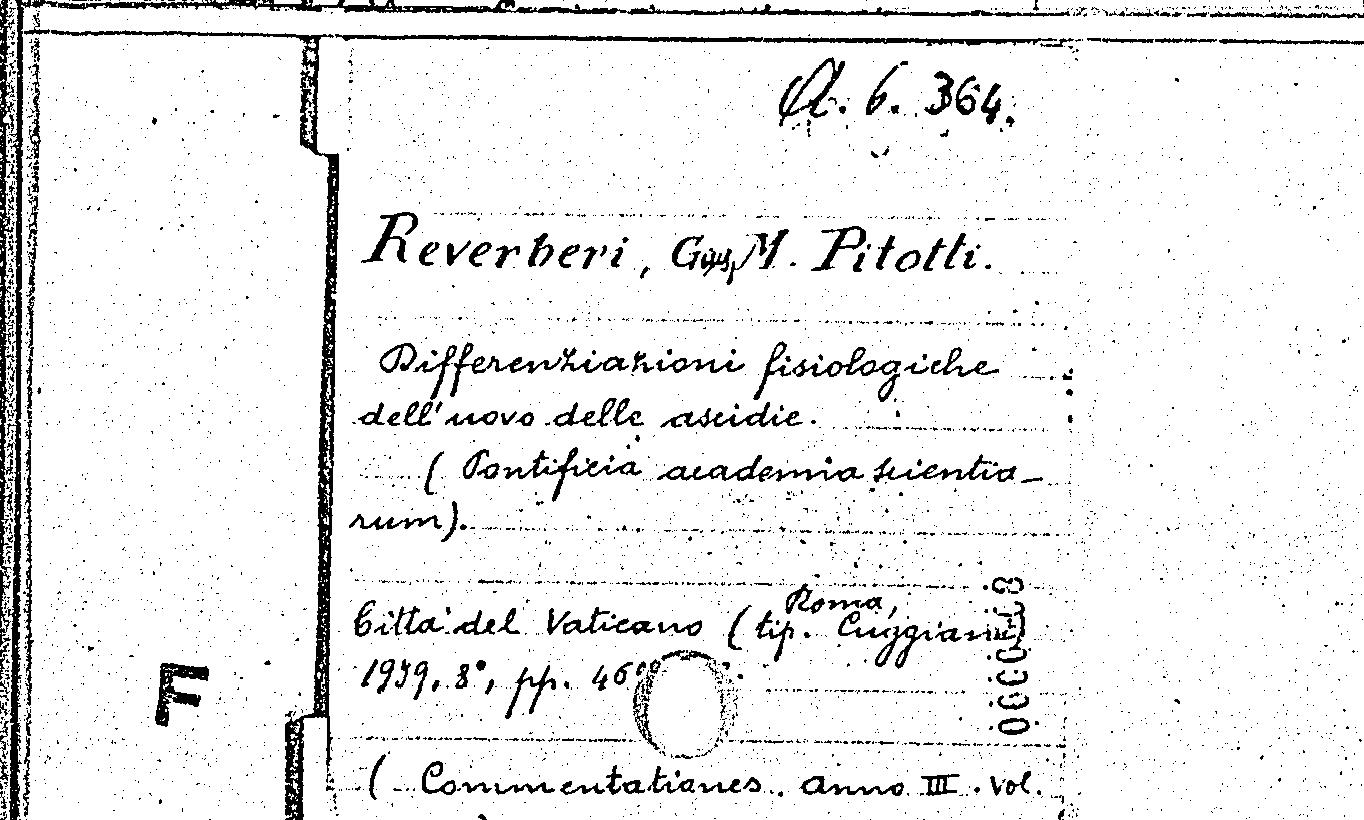 A. 6. 364.
Reverberi, G. M. Pitotti.
Differenziazioni fisiologiche
dell'uovo delle ascidie.
( Pontificia academia scientia-
rum).
Roma,
Città del Vaticano ( tip. Cuggiani)
1939, 8°, pp. 46
F
( Commentationes. Anno III. Vol.